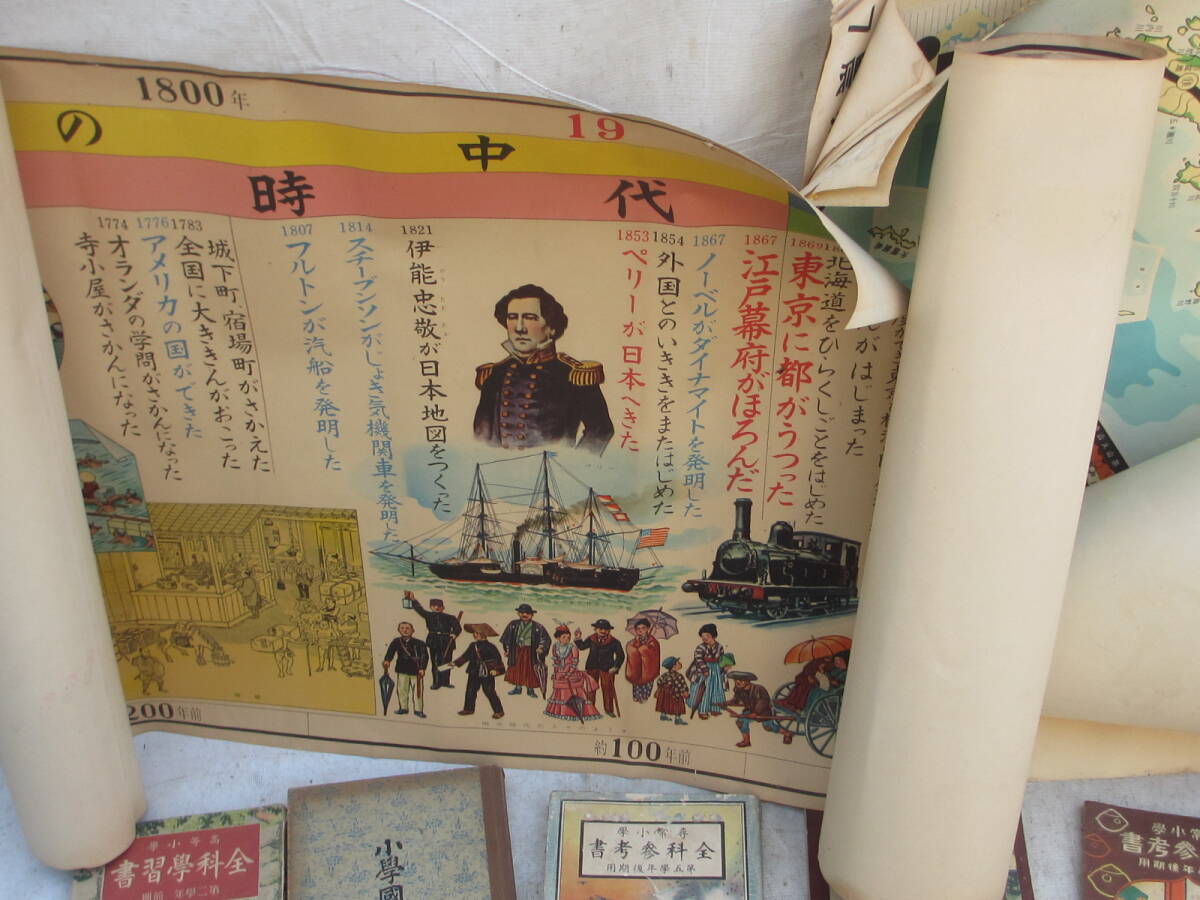 1800年
19
の中
時代
1774
オランダの学問がさかんになった
寺小屋がさかんになった
1776
アメリカの国ができた
1783
全国に大ききんがおこった
城下町、宿場町がさかえた
1807
フルトンが汽船を発明した
1814
スチーブンソンがじょうき気機関車を発明した
1821
伊能忠敬が日本地図をつくった
1853
ペリーが日本へきた
1854
外国とのいききをまたはじめた
1867
ノーベルがダイナマイトを発明した
1867
江戸幕府がほろんだ
1869
東京に都がうつった
北海道をひらくしごとをはじめた
がはじまった
200年前
約100年前
高等小學
全科學習書
第二學年 前期
小學國
尋常小學
全科參考書
第五學年後期用
小學
參考書
年後期用